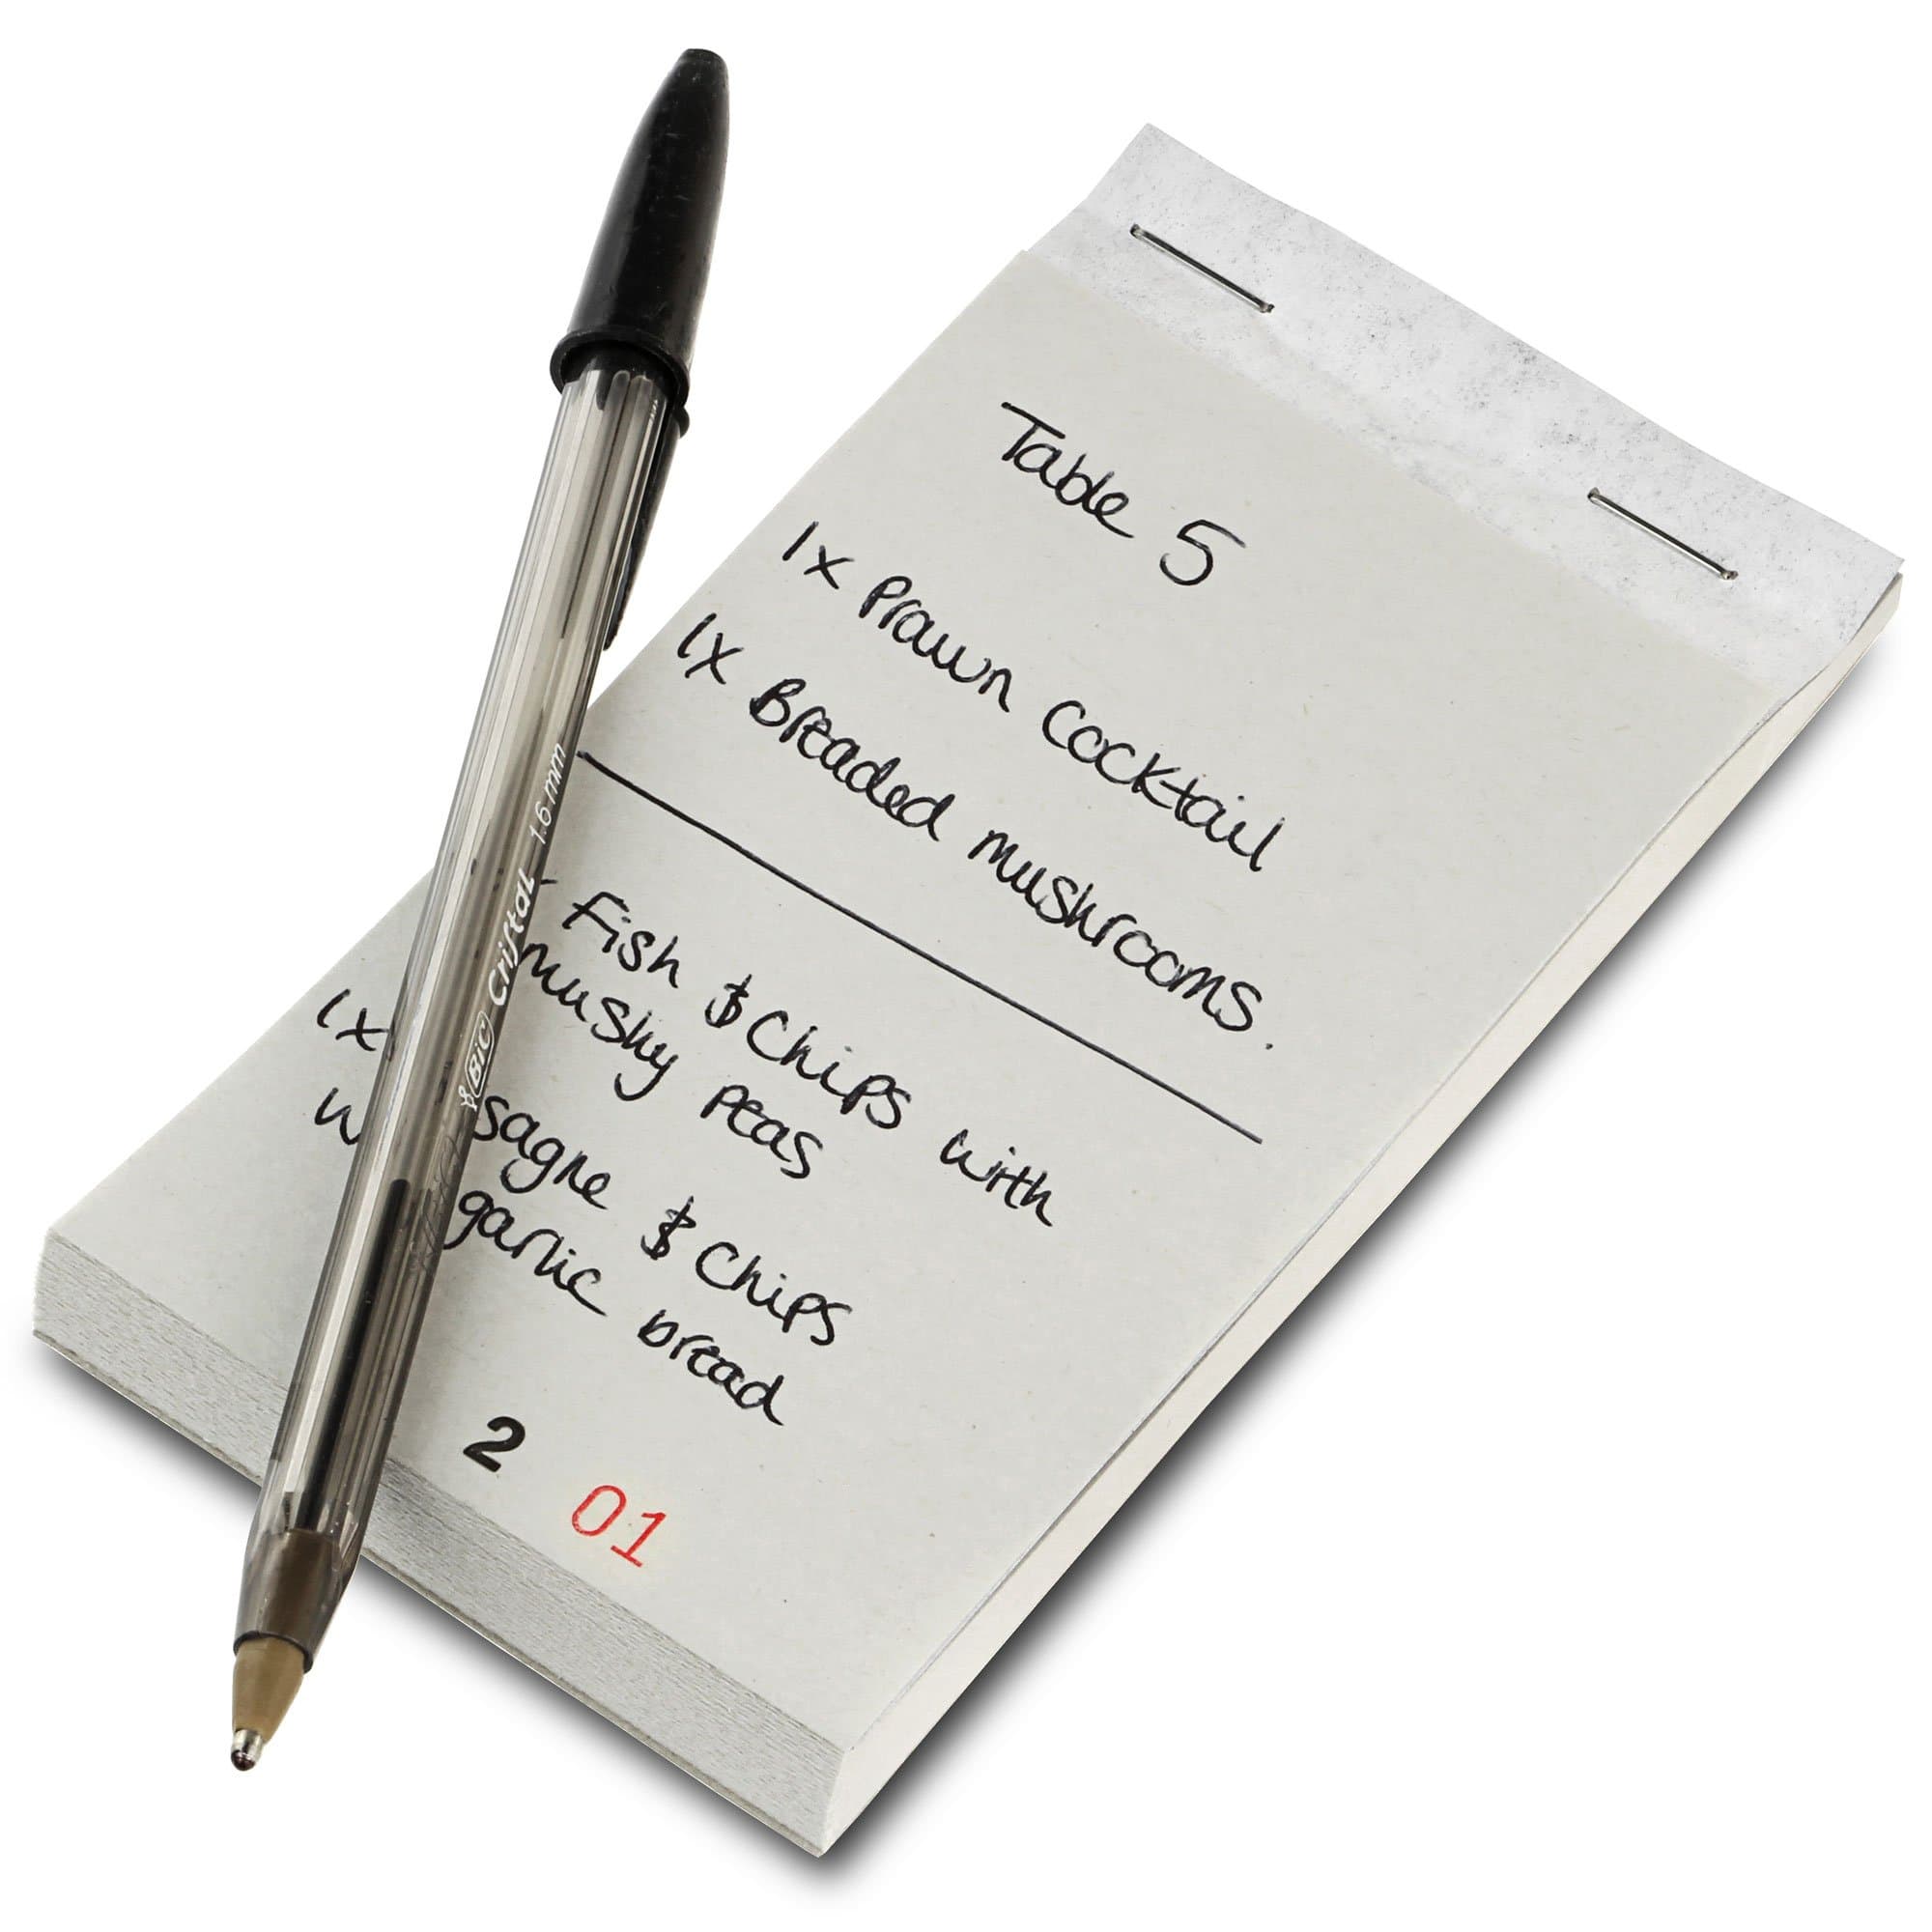 Table 5
1x Prawn cocktail
1x Breaded mushrooms.
Fish $ Chips with
mushy peas
1x sagne $ Chips
w garlic bread
2
01
BIC Cristal 1.6mm